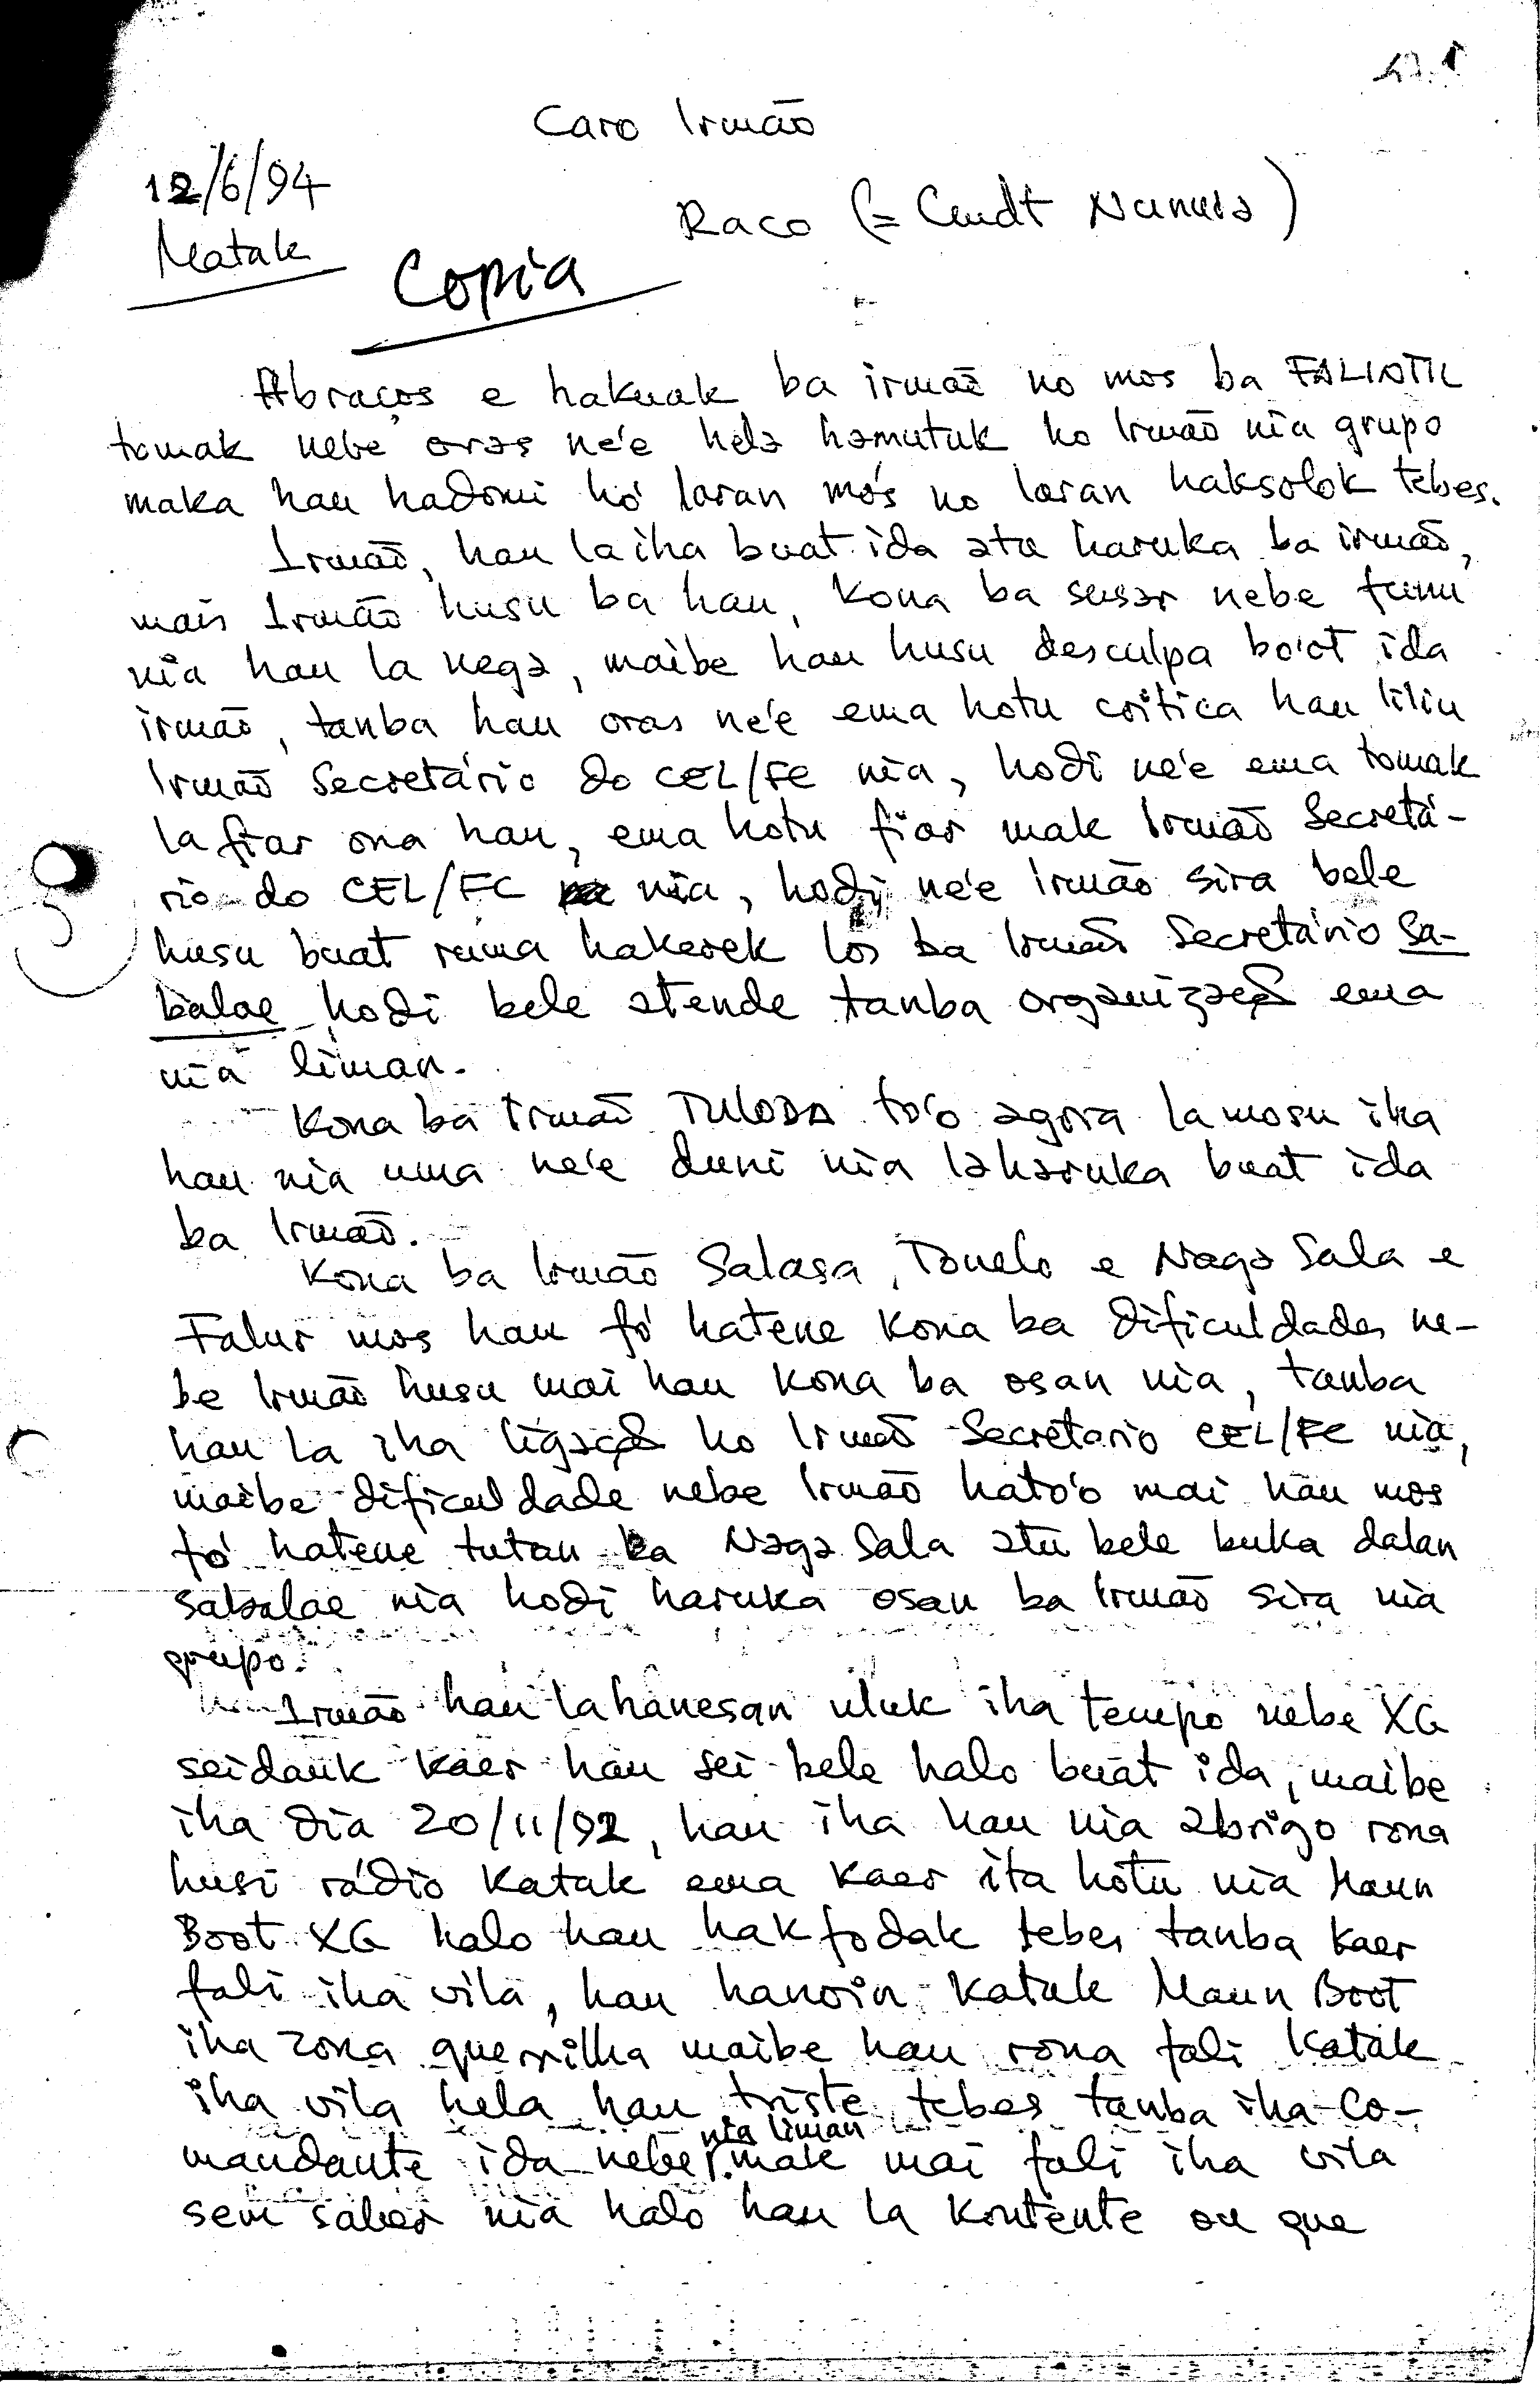 Caro Irmão
12/6/94
Raco (= Cmdt Nunura)
Matak
Copia
Abraços e hakuak ba irmaõ no mos ba FALINTIL
tomak nebe oras ne'e hela hamutuk ho Irmão nia grupo
maka hau hadomi hó laran mós no laran haksolok tebes.
Irmaõ, hau la iha buat ida atu haruka ba irmaõ,
mais Irmão husu ba hau, kona ba susar nebe funu
nia hau la nega, maibe hau husu desculpa bo'ot ida
irmaõ, tanba hau oras ne'e ema hotu critica hau liliu
Irmaõ Secretário do CEL/FC nia, hodi ne'e ema tomak
la fiar ona hau, ema hotu fiar mak Irmaõ Secretá-
rio do CEL/FC nia, hodi ne'e irmão sira bele
husu buat ruma hakerek los ba Irmaõ Secretário Sa-
balae hodi bele atende tanba organizaçaõ ema
nia liman.
Kona ba Irmaõ TULODA to'o agora la mosu iha
hau nia uma ne'e duni nia laharuka buat ida
ba Irmaõ.
Kona ba Irmão Salasa, Tonelo e Naga Sala e
Falur mos hau fó hatene kona ba dificuldades ne-
be Irmaõ husu mai hau kona ba osan nia, tanba
hau la iha ligaçaõ ho Irmaõ Secretario CEL/FC nia,
maibe dificuldade nebe Irmão hato'o mai hau mos
fó hatene tutan ba Naga Sala atu bele buka dalan
sabalae nia hodi haruka osan ba Irmaõ sira nia
grupo.
Irmão hau lahanesan uluk iha tempo nebe XG
seidauk kaer hau sei bele halo buat ida, maibe
iha dia 20/11/92, hau iha hau nia abrigo rona
husi rádio katak ema kaer ita hotu nia Maun
Boot XG halo hau hakfodak tebes tanba kaer
fali iha vila, hau hanoin katak Maun Boot
iha zona guerrilha maibe hau rona fali katak
iha vila hela hau triste tebes tanba iha Co-
mandante ida nebe nia liman mak mai fali iha vila
sem saber nia halo hau la kontente ou que